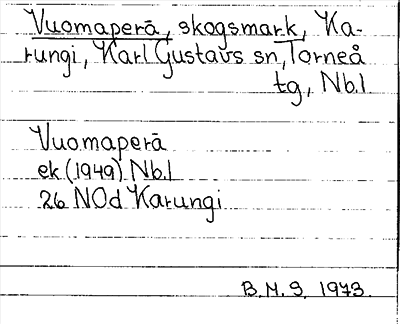 Vuomaperä, skogsmark, Ka-
rungi, Karl Gustavs sn, Torneå
tg, Nb.l
Vuomaperä
ek (1949) Nb.l
26 NOd Karungi
B.M.S. 1973.